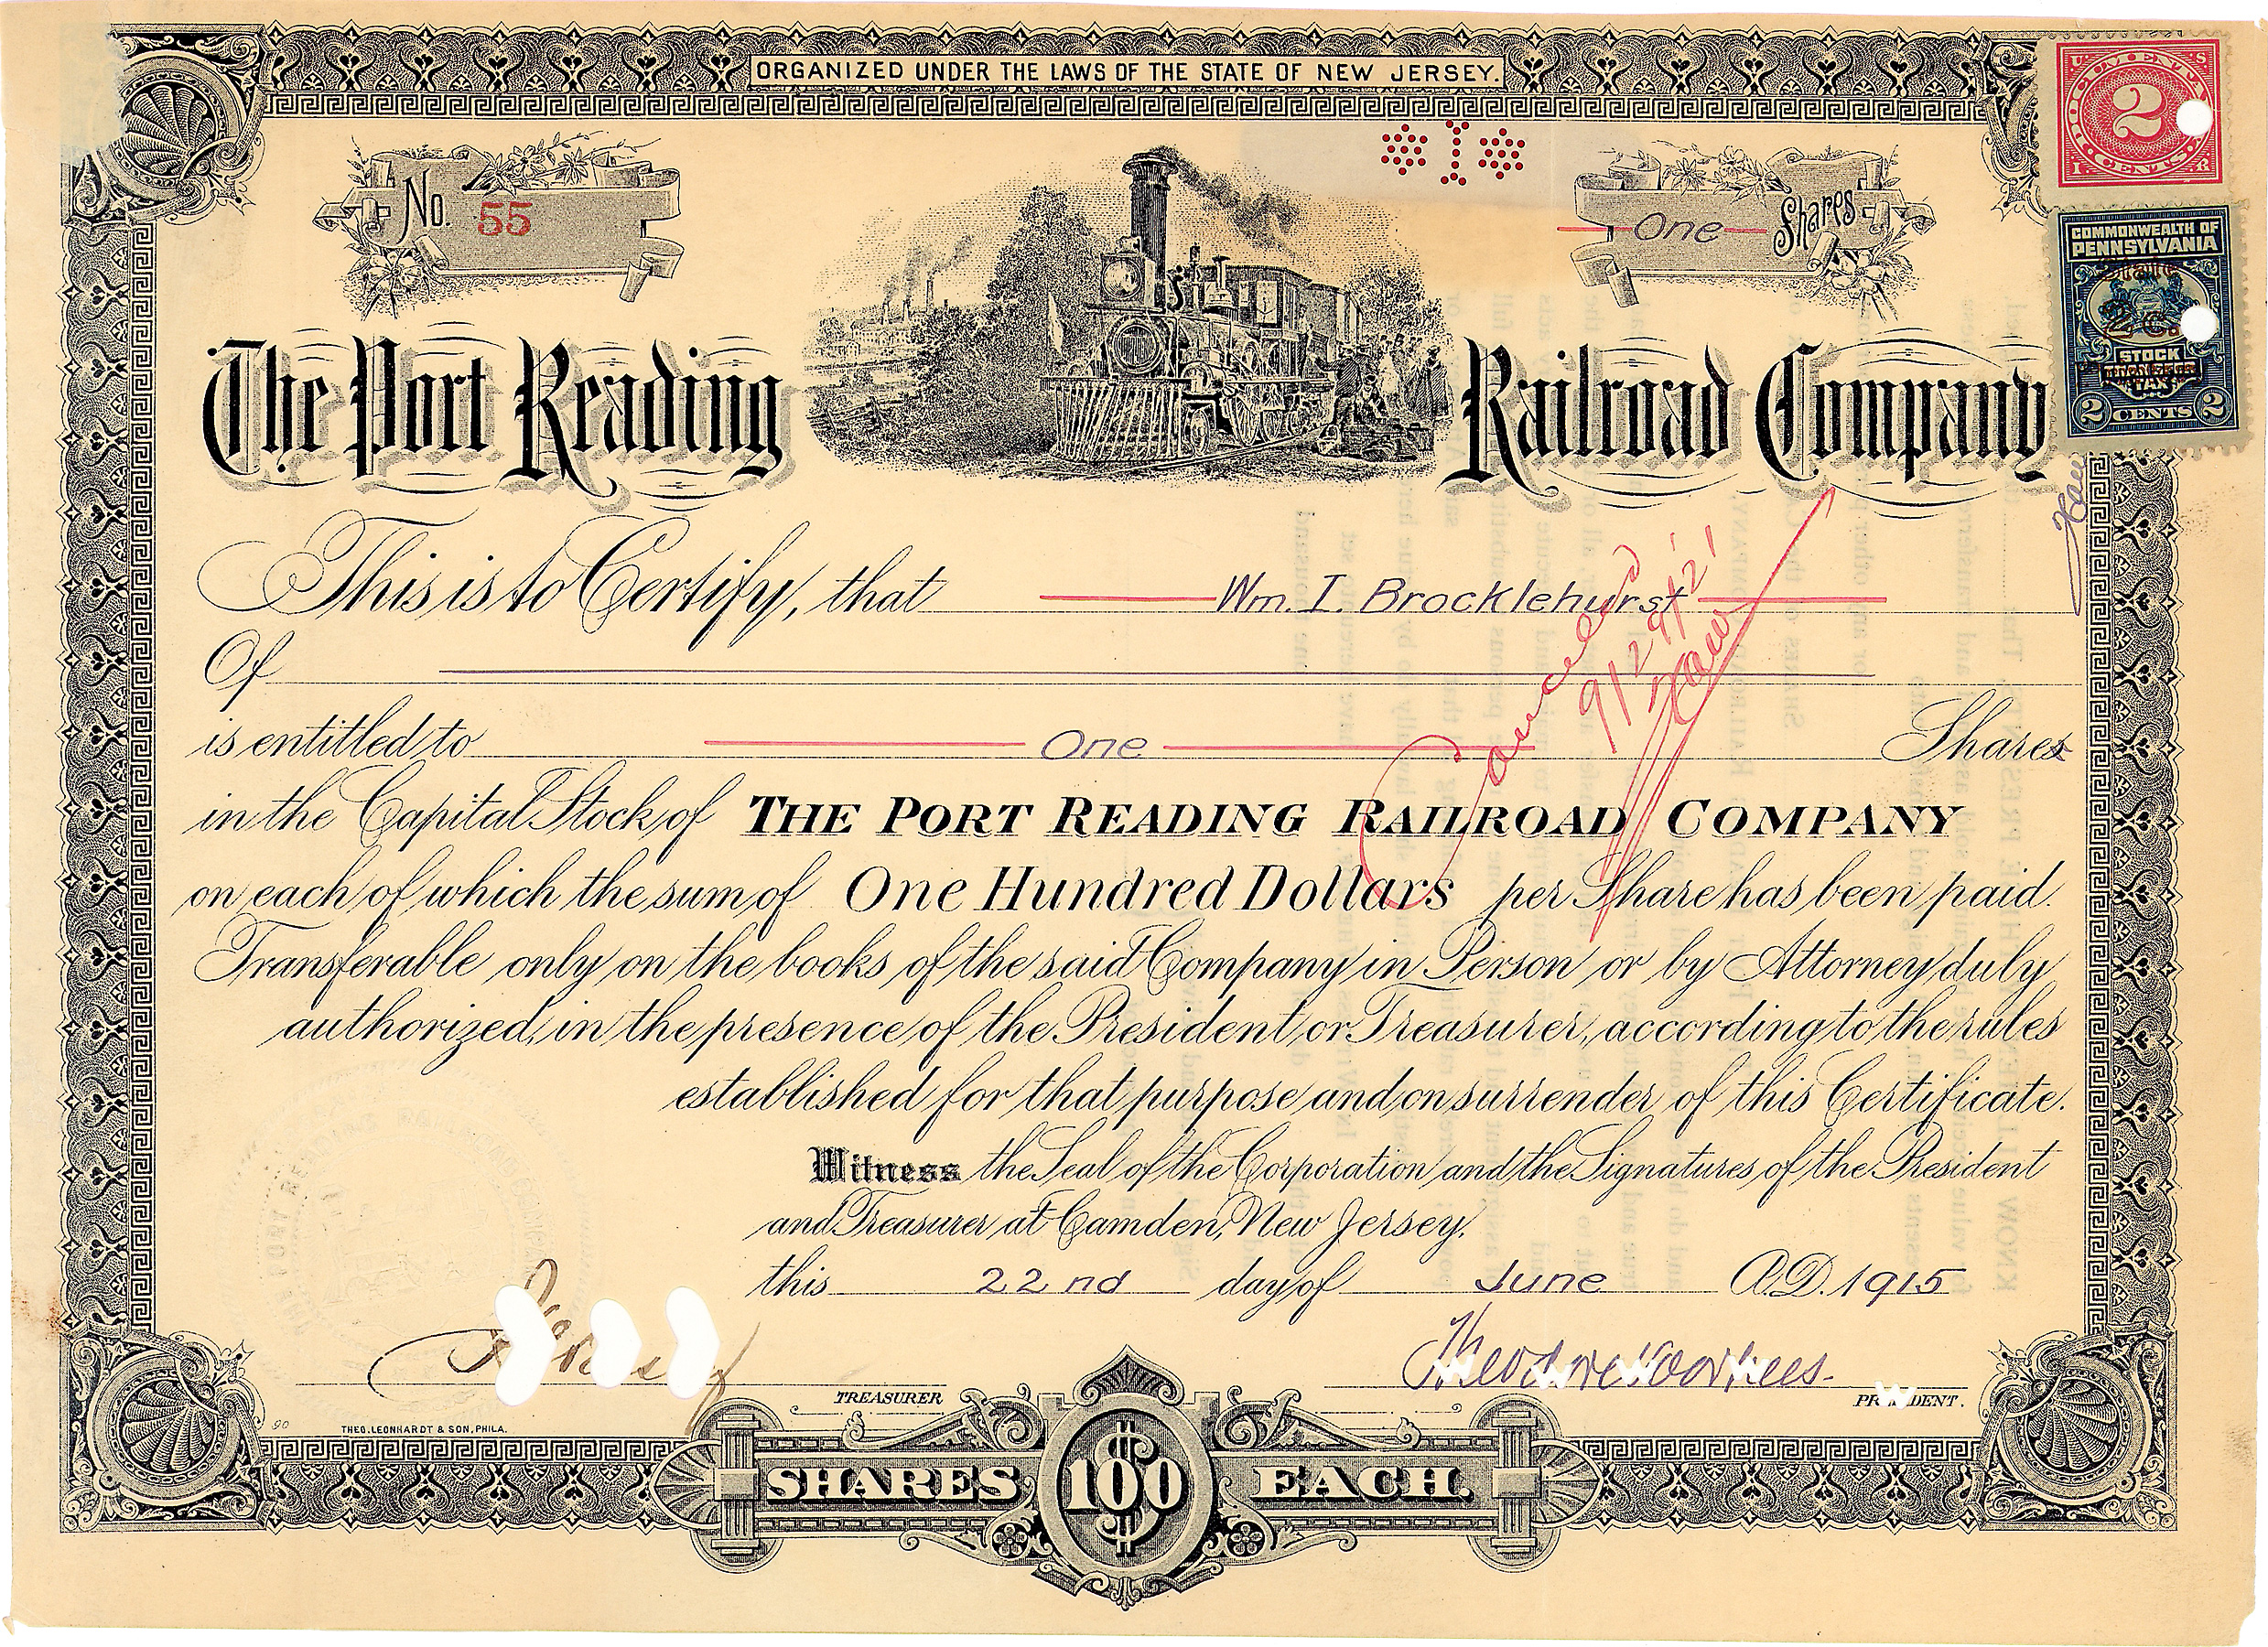 ORGANIZED UNDER THE LAWS OF THE STATE OF NEW JERSEY.
No. 55
*1*
One Shares
U S
DOCUMENTARY
2
TWO CENTS
I R
COMMONWEALTH OF
PENNSYLVANIA
State
2 C.
STOCK
TRANSFER
TAX
2 CENTS 2
The Port Reading Railroad Company
This is to Certify, that Wm. I. Brocklehurst
Of
is entitled to One Shares
in the Capital Stock of THE PORT READING RAILROAD COMPANY
on each of which the sum of One Hundred Dollars per Share has been paid.
Transferable only on the books of the said Company in Person or by Attorney duly
authorized, in the presence of the President or Treasurer, according to the rules
established for that purpose and on surrender of this Certificate.
Cancelled
9/29/21
Witness the Seal of the Corporation and the Signatures of the President
and Treasurer at Camden, New Jersey,
this 22nd day of June A.D. 1915
Theodore Voorhees
TREASURER
PRESIDENT.
90
THEO. LEONHARDT & SON, PHILA.
SHARES $100 EACH.